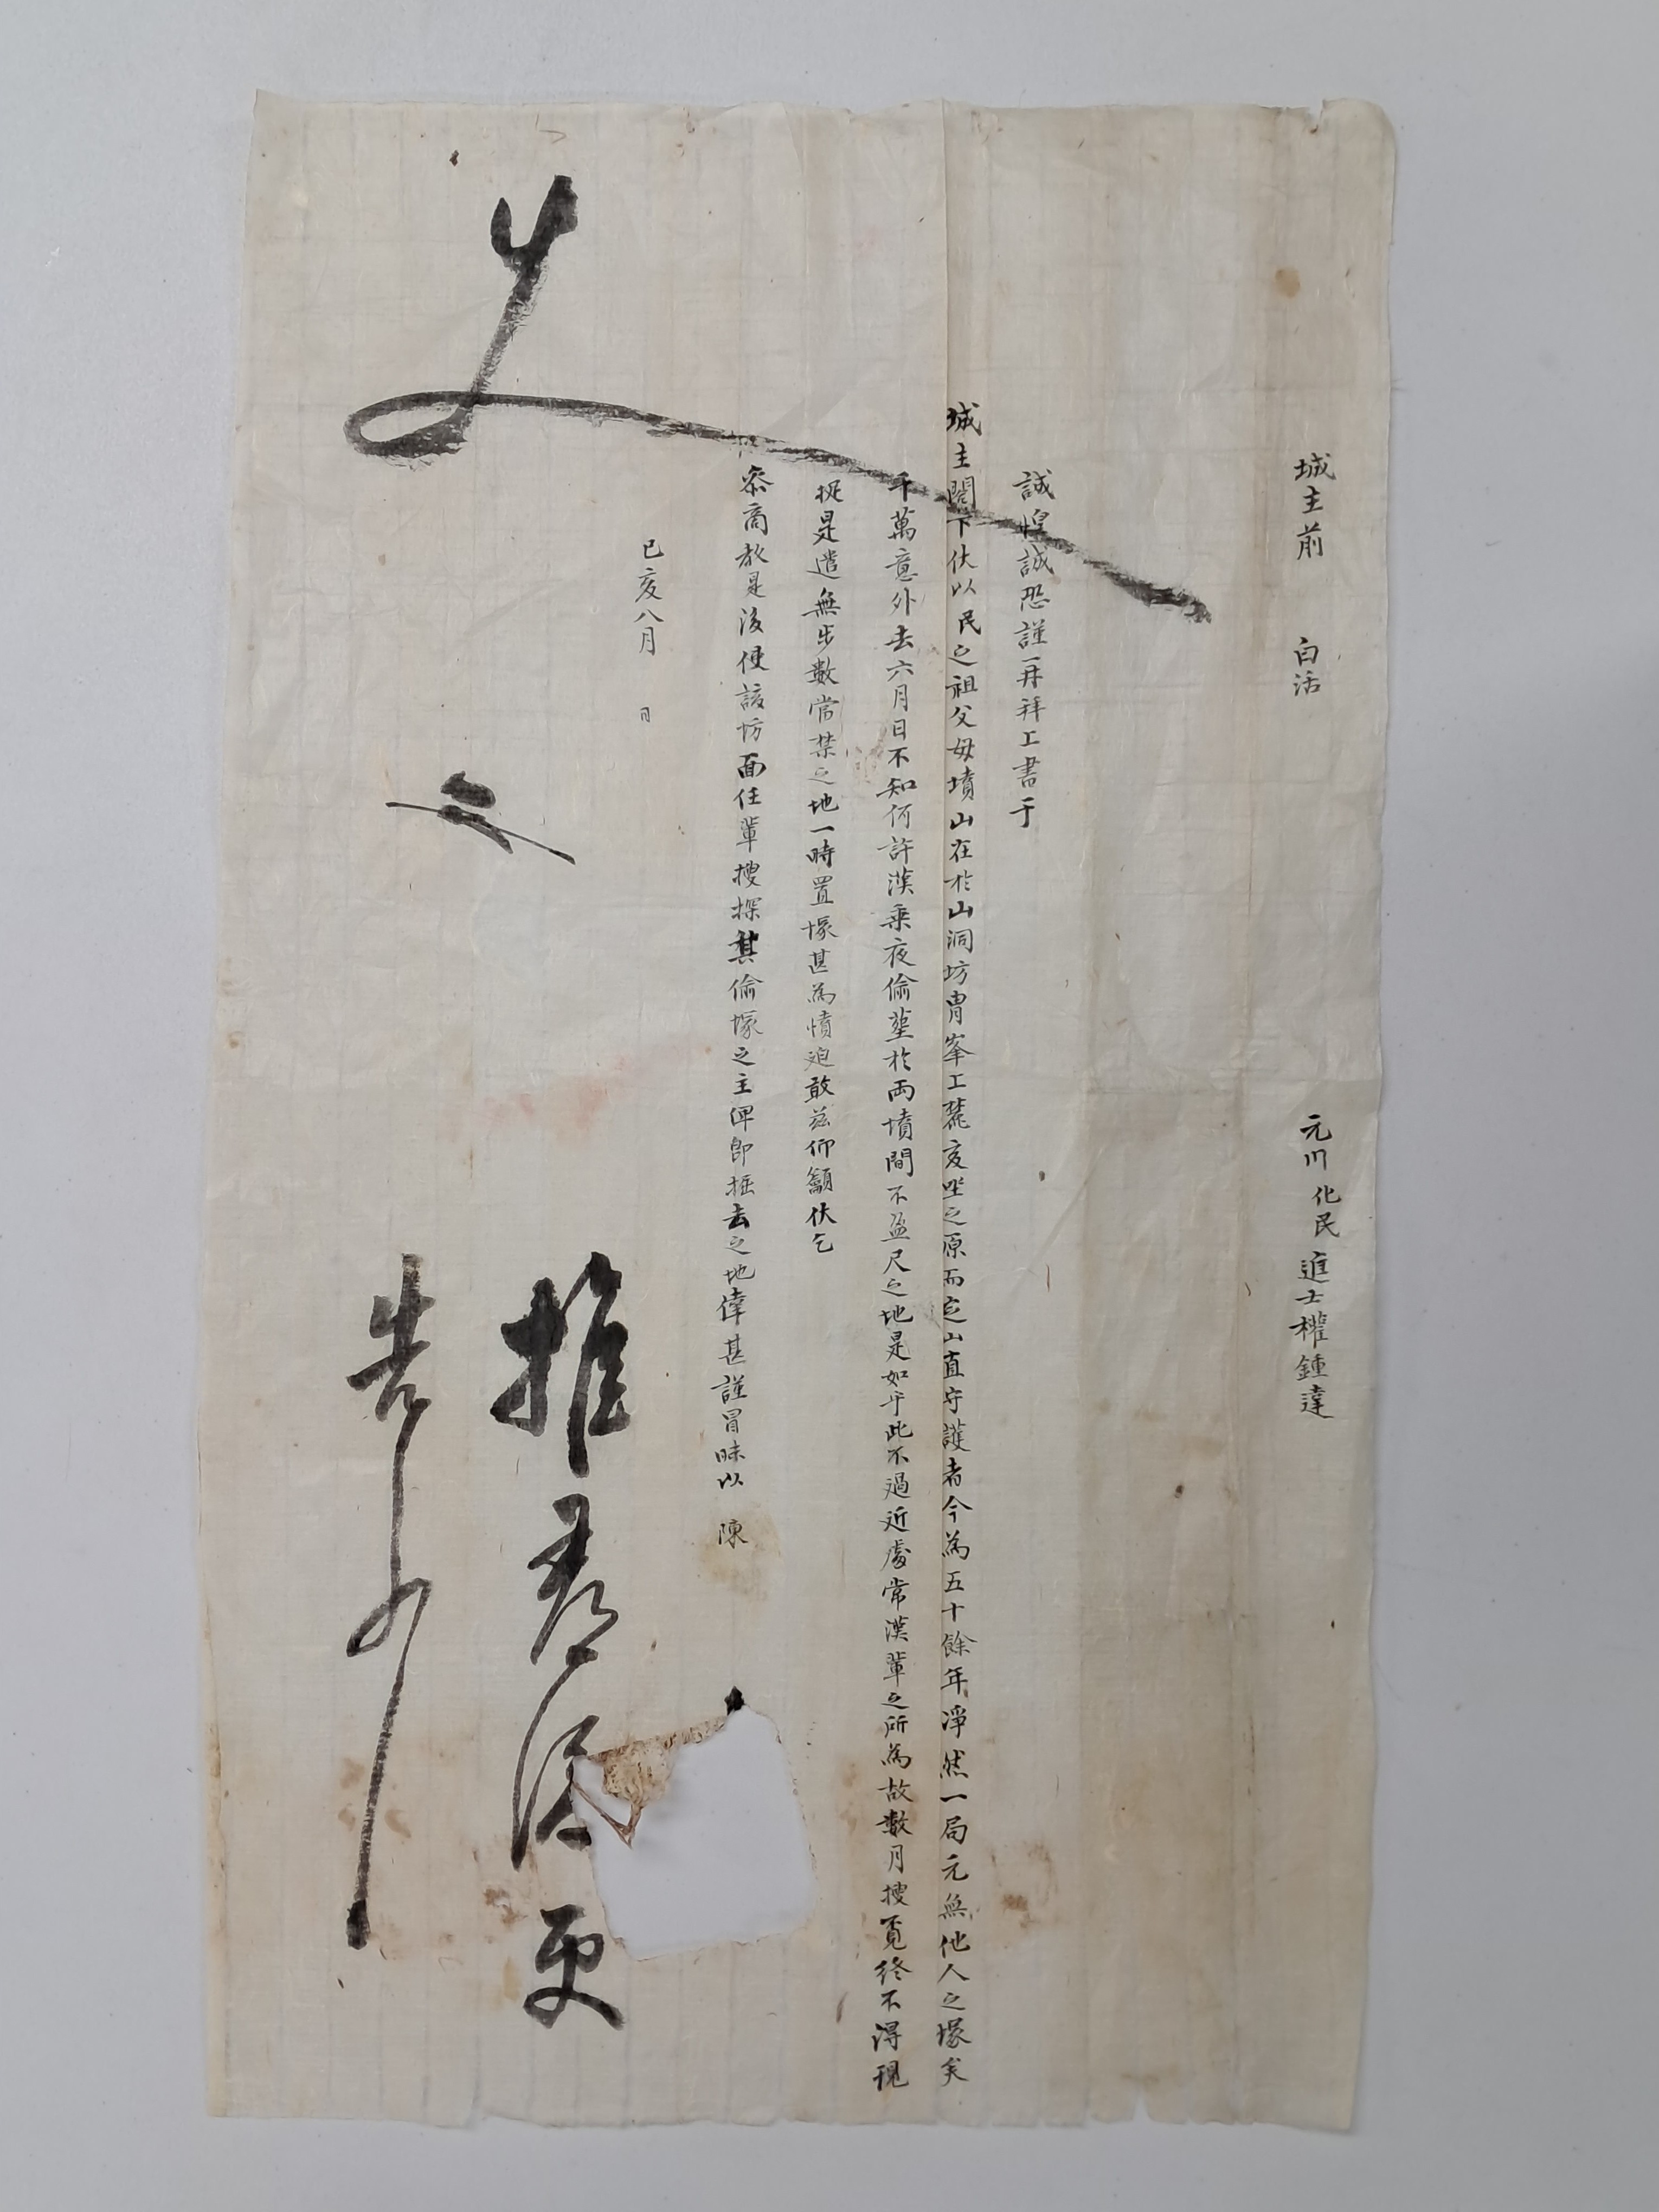 城主前 白活 元川化民進士權鍾達
誠惶誠恐謹再拜上書于
城主閤下伏以民之祖父母墳山在於山洞坊胄峯上麓亥坐之原而定山直守護者今為五十餘年淨然一局元無他人之塚矣
千萬意外去六月日不知何許漢乘夜偷葬於兩墳間不盈尺之地是如乎此不過近處常漢輩之所為故數月搜覓終不得現
捉是遣無步數常禁之地一時置塚甚為憤迫敢玆仰籲伏乞
叅商敎是後使該坊面任輩搜探其偷塚之主俾即掘去之地偉甚謹冒昧以 陳
己亥八月 日
推尋後更
告